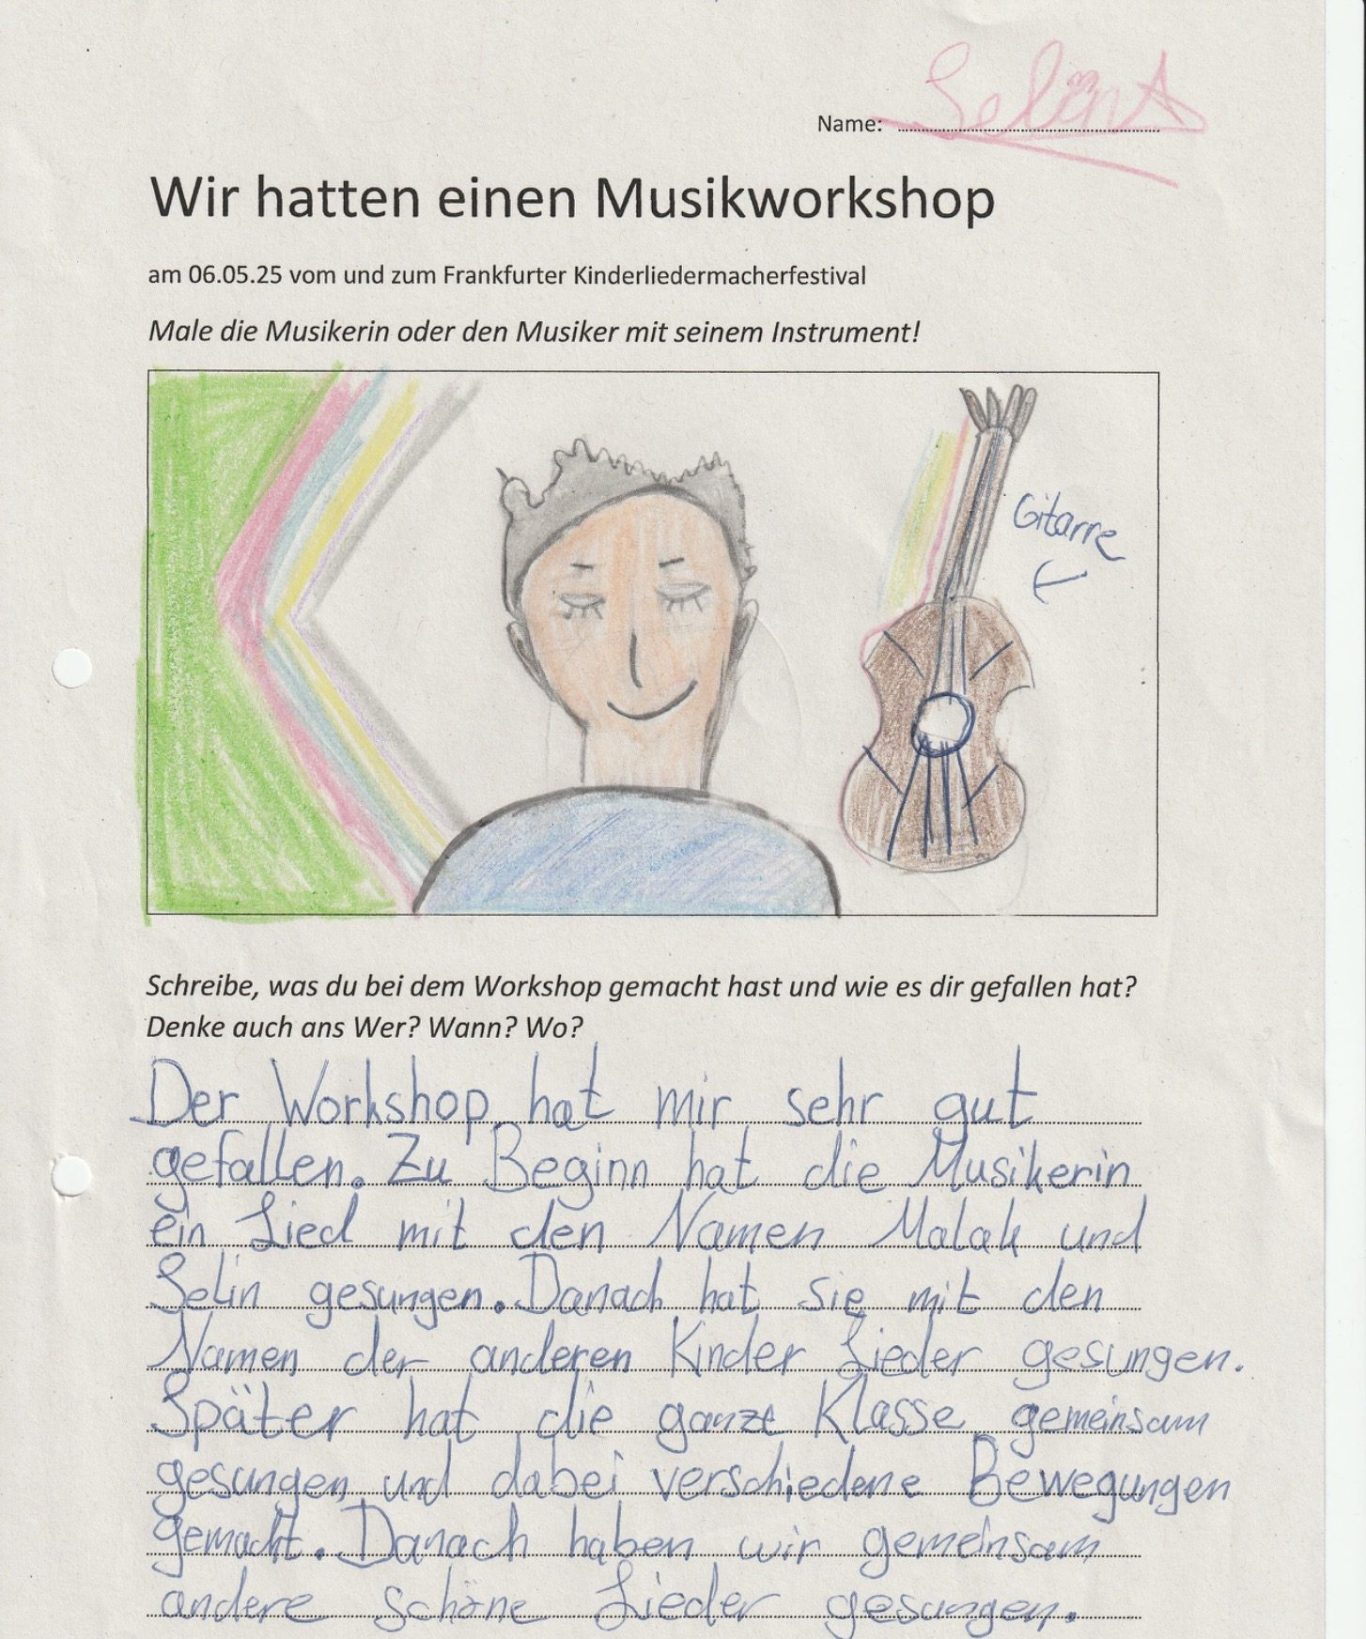 Name: Selin A
Wir hatten einen Musikworkshop
am 06.05.25 vom und zum Frankfurter Kinderliedermacherfestival
Male die Musikerin oder den Musiker mit seinem Instrument!
Gitarre
Schreibe, was du bei dem Workshop gemacht hast und wie es dir gefallen hat?
Denke auch ans Wer? Wann? Wo?
Der Workshop hat mir sehr gut
gefallen. Zu Beginn hat die Musikerin
ein Lied mit den Namen Malak und
Selin gesungen. Danach hat sie mit den
Namen der anderen Kinder Lieder gesungen.
Später hat die ganze Klasse gemeinsam
gesungen und dabei verschiedene Bewegungen
gemacht. Danach haben wir gemeinsam
andere schöne Lieder gesungen.